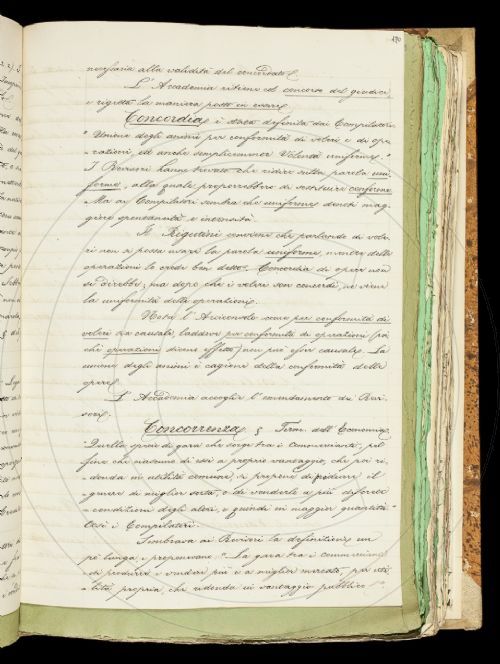 170
necessaria alla validità del concordato.
L'Accademia ritiene col concorso del giudice,
e rigetta la maniera posto in essere.
Concordia è stata definita dai Compilatori
"Unione degli animi per conformità di voleri e di ope-
razioni ed anche semplicemente Volontà uniforme."
I Revisori hanno trovato che ridire sulla parola uni-
forme, alla quale proporrebbero di sostituire conforme.
Ma ai Compilatori sembra che uniforme denoti mag-
giore spontaneità e intensità.
Il Rigutini conviene che parlando di vole-
ri non si possa usare la parola uniforme, mentre delle
operazioni la crede ben detto. Concordia di opere non
si direbbe; ma dopo che i voleri son concordi, ne viene
la uniformità delle operazioni.
Nota l'Arciconsolo come per conformità di
voleri sia causale, laddove per conformità di operazioni (poi-
chè operazioni dicono effetto) non può esser causale. La
unione degli animi è cagione della conformità delle
opere.
L'Accademia accoglie l'emendamento dei Revi-
sori.
Concorrenza § Term. dell'Economia.
Quella specie di gara che sorge tra i commercianti, pel
fine che nascano di essi a proprio vantaggio, che poi ri-
donda in utilità comune, si propone di produrre il
genere di miglior sorta, o di venderlo a più discrete
condizioni degli altri, e quindi in maggior quantità.
Così i Compilatori.
Sembrava ai Revisori la definizione un
po' lunga e proponevano "La gara tra i commercianti
di produrre e vendere più e a miglior mercato, per uti-
lità propria, che ridonda in vantaggio pubblico".